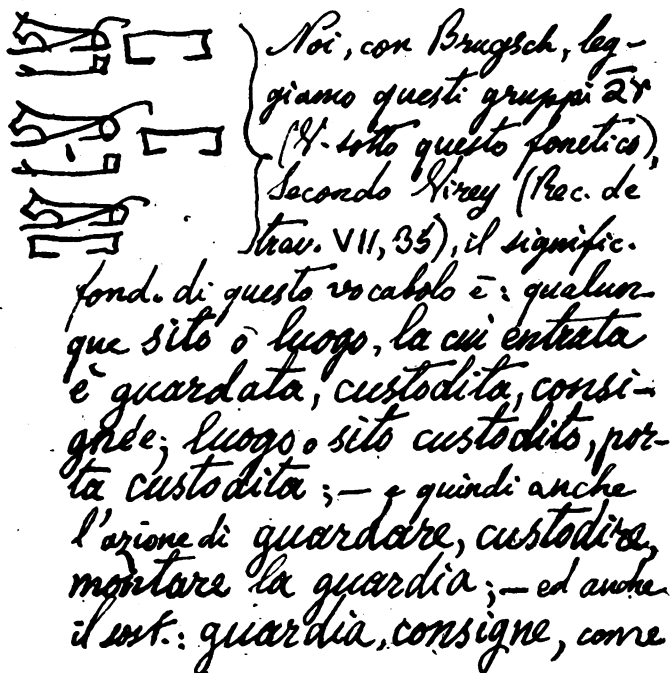 Noi, con Brugsch, leg-
giamo questi gruppi
(V. sotto questo fonetico),
Secondo Virey (Rec. de
trav. VII, 35), il signific.
fond. di questo vocabolo è: qualun-
que sito o luogo, la cui entrata
è guardata, custodita, consi-
gnée; luogo o sito custodito, por-
ta custodita; — e quindi anche
l'azione di guardare, custodire,
montare la guardia; — ed anche
il sost.: guardia, consigne, come